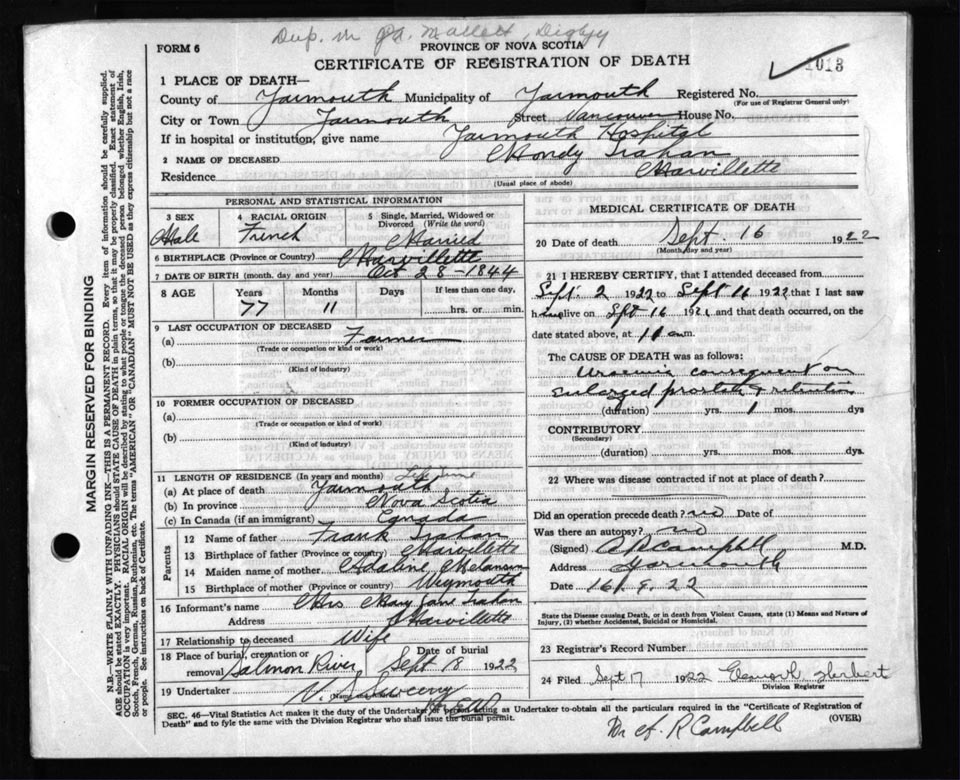 Dup. in Mallett, Digby
FORM 6
PROVINCE OF NOVA SCOTIA
CERTIFICATE OF REGISTRATION OF DEATH
1013
1 PLACE OF DEATH—
County of Yarmouth Municipality of Yarmouth Registered No.
(For use of Registrar General only)
City or Town Yarmouth Street Vancouver House No.
If in hospital or institution, give name Yarmouth Hospital
2 NAME OF DECEASED Mondy Trahan
Residence Mavillette
(Usual place of abode)
PERSONAL AND STATISTICAL INFORMATION
3 SEX Male
4 RACIAL ORIGIN French
5 Single, Married, Widowed or Divorced (Write the word) Married
6 BIRTHPLACE (Province or Country) Mavillette
7 DATE OF BIRTH (month, day and year) Oct 28 - 1844
8 AGE Years Months Days If less than one day,
77 11 hrs. or min.
9 LAST OCCUPATION OF DECEASED
(a) Farmer
(Trade or occupation or kind of work)
(b)
(Kind of industry)
10 FORMER OCCUPATION OF DECEASED
(a)
(Trade or occupation or kind of work)
(b)
(Kind of industry)
11 LENGTH OF RESIDENCE (In years and months) Life Time
(a) At place of death Yarmouth
(b) In province Nova Scotia
(c) In Canada (if an immigrant) Canada
Parents
12 Name of father Frank Trahan
13 Birthplace of father (Province or country) Mavillette
14 Maiden name of mother Adaline Melanson
15 Birthplace of mother (Province or country) Weymouth
16 Informant's name Mrs Mary Jane Trahan
Address Mavillette
17 Relationship to deceased Wife
18 Place of burial, cremation or removal Salmon River Date of burial Sept 18 1922
19 Undertaker V. S. Sweeny
MEDICAL CERTIFICATE OF DEATH
20 Date of death Sept 16 1922
(Month, day and year)
21 I HEREBY CERTIFY, that I attended deceased from
Sept. 2 1922 to Sept 16 1922 that I last saw
him alive on Sept 16 192 and that death occurred, on the
date stated above, at m.
The CAUSE OF DEATH was as follows:
Uraemia consequent on
enlarged prostate & retention
(duration) yrs. 1 mos. dys
CONTRIBUTORY
(Secondary)
(duration) yrs. mos. dys.
22 Where was disease contracted if not at place of death?
Did an operation precede death? no Date of
Was there an autopsy? no
(Signed) A R Campbell M.D.
Address Yarmouth
Date 16/.9.22
State the Disease causing Death, or in death from Violent Causes, state (1) Means and Nature of
Injury, (2) whether Accidental, Suicidal or Homicidal.
23 Registrar's Record Number
24 Filed Sept 17 1922 Herbert
Division Registrar
SEC. 46—Vital Statistics Act makes it the duty of the Undertaker or person acting as Undertaker to obtain all the particulars required in the "Certificate of Registration of
Death" and to fyle the same with the Division Registrar who shall issue the burial permit.
(OVER)
Dr A. R Campbell
MARGIN RESERVED FOR BINDING
N.B.—WRITE PLAINLY WITH UNFADING INK—THIS IS A PERMANENT RECORD. Every item of information should be carefully supplied.
AGE should be stated EXACTLY. PHYSICIANS should STATE CAUSE OF DEATH in plain terms, so that it may be properly classified. Exact statement of
OCCUPATION is very important. RACIAL ORIGIN will be described by stating to what people or tongue the deceased person belonged whether English, Irish,
Scotch, French, German, Russian, Ruthenian, etc. The terms "AMERICAN" or "CANADIAN" MUST NOT BE USED as they express citizenship but not a race
or people. See instructions on back of Certificate.